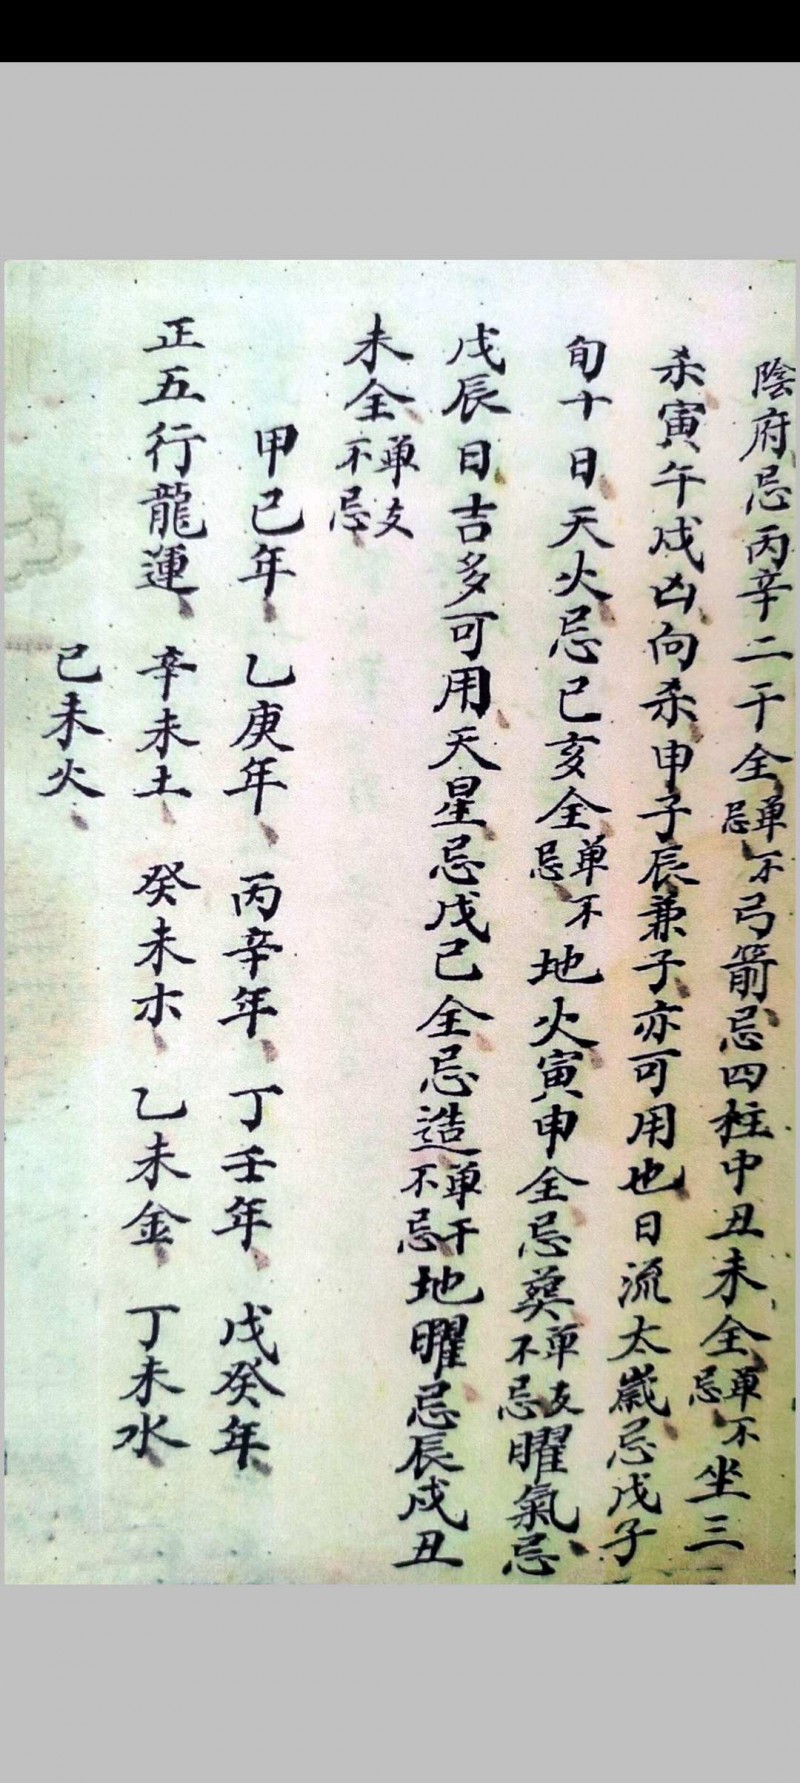 陰府忌丙辛二干全單不忌弓箭忌四柱中丑未全單不忌坐三
杀寅午戌凶向杀申子辰兼子亦可用也日流太歲忌戊子
旬十日天火忌巳亥全單不忌地火寅申全忌葬單支不忌曜氣忌
戊辰日吉多可用天星忌戊己全忌造單干不忌地曜忌辰戌丑
未全單支不忌
甲己年、乙庚年、丙辛年、丁壬年、戊癸年、
正五行龍運、辛未土、癸未木、乙未金、丁未水、
己未火、